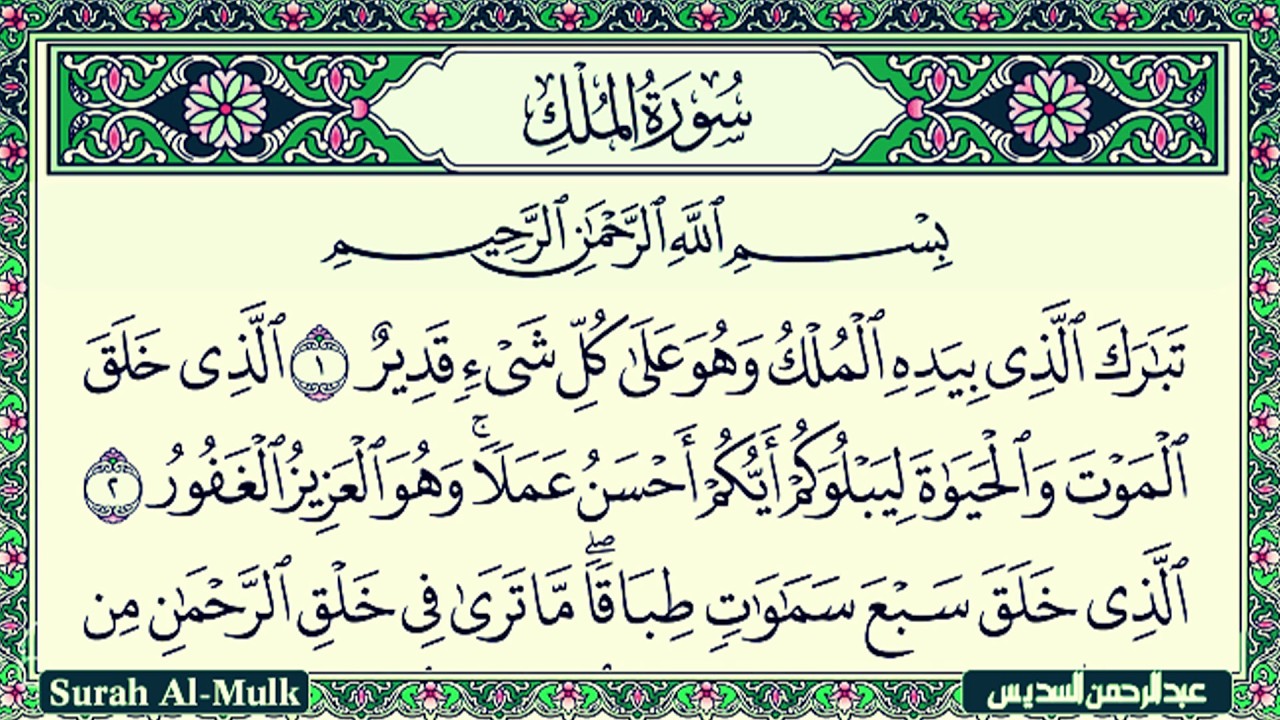 سُورَةُ الْمُلْكِ
بِسْمِ ٱللَّهِ ٱلرَّحْمَٰنِ ٱلرَّحِيمِ
تَبَٰرَكَ ٱلَّذِى بِيَدِهِ ٱلْمُلْكُ وَهُوَ عَلَىٰ كُلِّ شَىْءٍ قَدِيرٌ ١ ٱلَّذِى خَلَقَ
ٱلْمَوْتَ وَٱلْحَيَوٰةَ لِيَبْلُوَكُمْ أَيُّكُمْ أَحْسَنُ عَمَلًا ۚ وَهُوَ ٱلْعَزِيزُ ٱلْغَفُورُ ٢
ٱلَّذِى خَلَقَ سَبْعَ سَمَٰوَٰتٍ طِبَاقًا ۖ مَّا تَرَىٰ فِى خَلْقِ ٱلرَّحْمَٰنِ مِن
Surah Al-Mulk
عبدالرحمن السديس